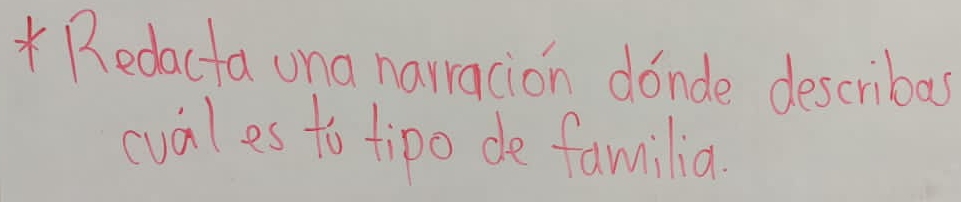 * Redacta una narración dónde describas
cuál es tú tipo de familia.